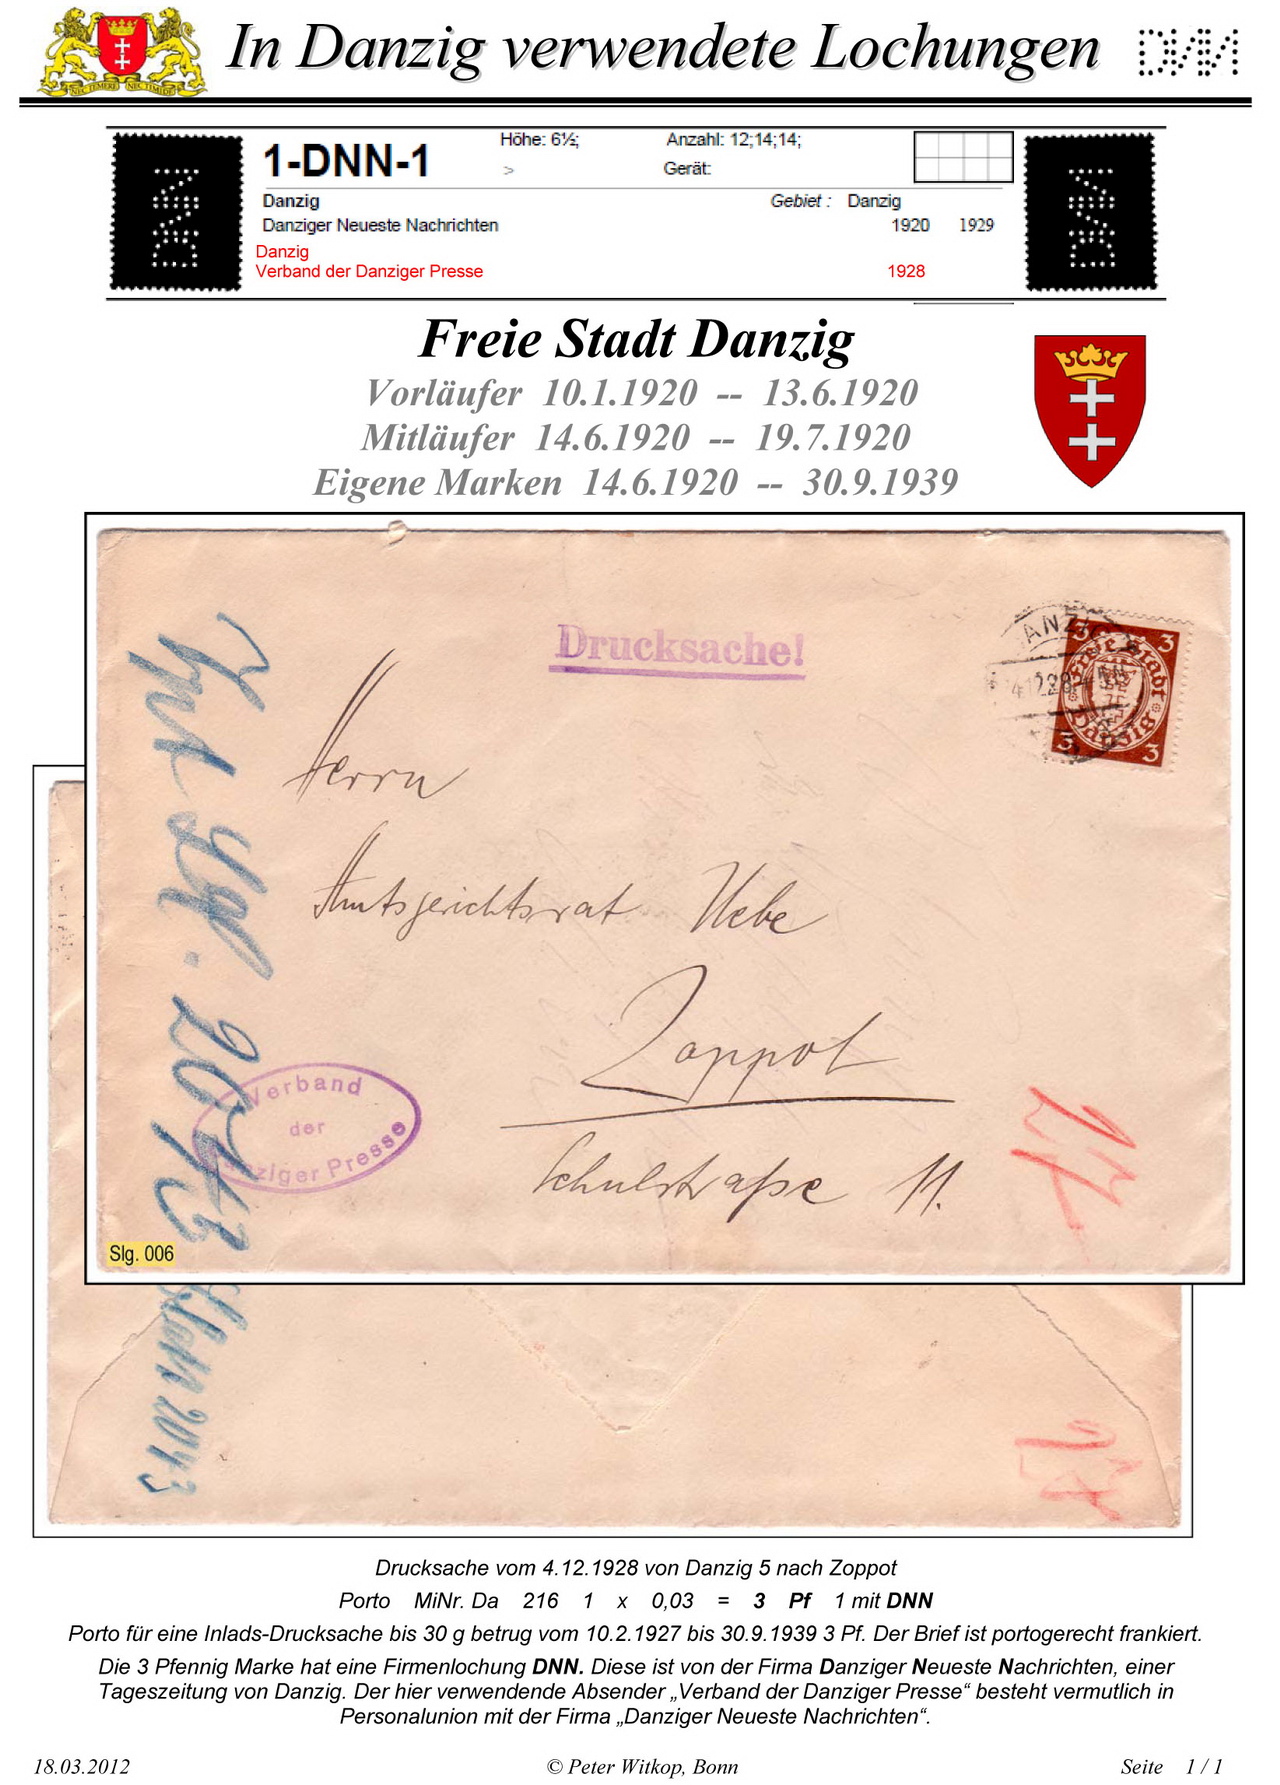 NEC TEMERE NEC TIMIDE
In Danzig verwendete Lochungen DNN
DNN
1-DNN-1
Höhe: 6½; Anzahl: 12;14;14;
> Gerät:
Danzig Gebiet : Danzig
Danziger Neueste Nachrichten 1920 1929
Danzig
Verband der Danziger Presse 1928
DNN
Freie Stadt Danzig
Vorläufer 10.1.1920 -- 13.6.1920
Mitläufer 14.6.1920 -- 19.7.1920
Eigene Marken 14.6.1920 -- 30.9.1939
Drucksache!
3 3
Freie Stadt
Danzig
3 3
Herrn
Amtsgerichtsrat
Zoppot
Schulstraße 11.
Verband
der
Danziger Presse
Slg. 006
2043
Drucksache vom 4.12.1928 von Danzig 5 nach Zoppot
Porto MiNr. Da 216 1 x 0,03 = 3 Pf 1 mit DNN
Porto für eine Inlads-Drucksache bis 30 g betrug vom 10.2.1927 bis 30.9.1939 3 Pf. Der Brief ist portogerecht frankiert.
Die 3 Pfennig Marke hat eine Firmenlochung DNN. Diese ist von der Firma Danziger Neueste Nachrichten, einer
Tageszeitung von Danzig. Der hier verwendende Absender „Verband der Danziger Presse“ besteht vermutlich in
Personalunion mit der Firma „Danziger Neueste Nachrichten“.
18.03.2012 © Peter Witkop, Bonn Seite 1 / 1